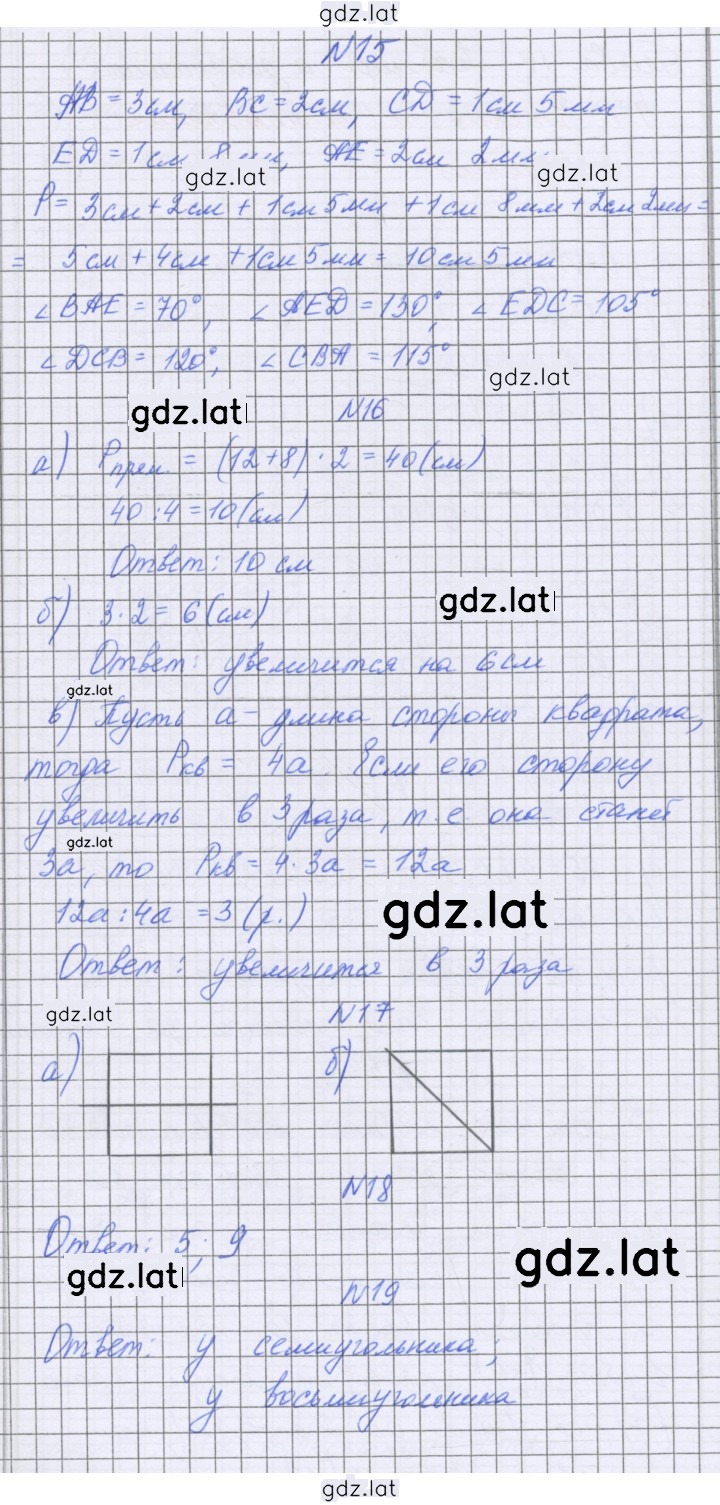 gdz.lat
N15
AB = 3см, BC = 2см, CD = 1см 5мм
ED = 1см 8мм, AE = 2см 2мм
gdz.lat
gdz.lat
P = 3см + 2см + 1см 5мм + 1см 8мм + 2см 2мм =
= 5см + 4см + 1см 5мм = 10см 5мм
∠BAE = 70°, ∠AED = 130°, ∠EDC = 105°
∠DCB = 120°, ∠CBA = 115°
gdz.lat
gdz.lat
N16
а) Pпрям. = (12+8)·2 = 40 (см)
40 : 4 = 10 (см)
Ответ: 10 см
б) 3·2 = 6 (см)
gdz.lat
Ответ: увеличится на 6см
gdz.lat
в) Пусть a - длина стороны квадрата,
тогда Pкв = 4a. Если его сторону
увеличить в 3 раза, т.е. она станет
gdz.lat
3a, то Pкв = 4·3a = 12a
12a : 4a = 3 (р.)
gdz.lat
Ответ: увеличится в 3 раза
gdz.lat
N17
а) б)
N18
Ответ: 5; 9
gdz.lat
gdz.lat
N19
Ответ: у семиугольника;
у восьмиуголника
gdz.lat